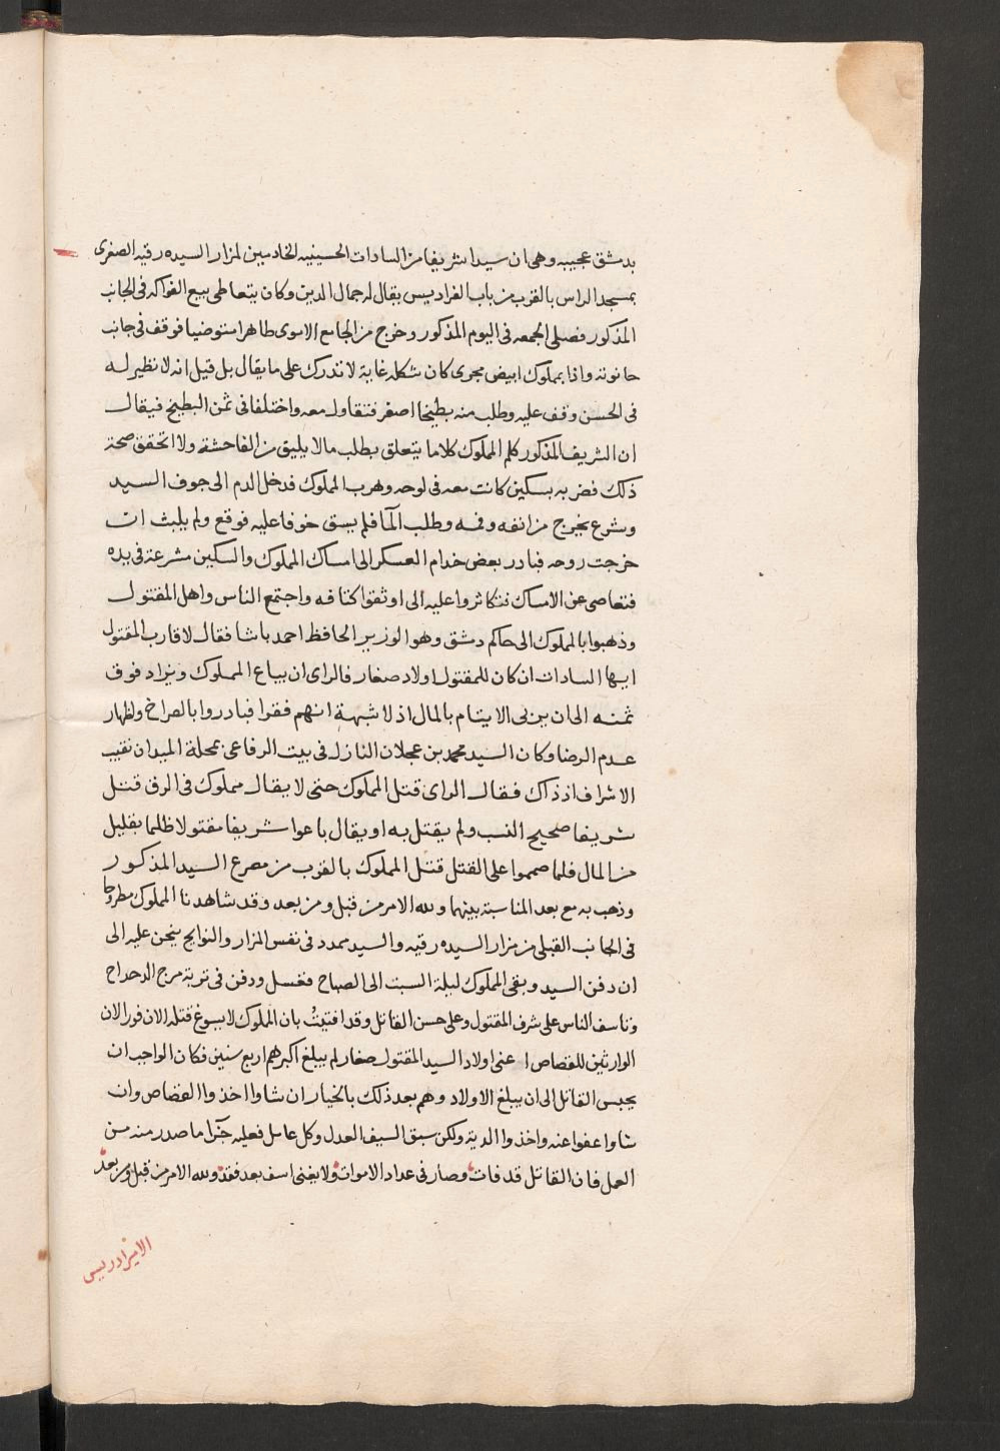 بدمشق عجيبه وهى ان سيدا شريفا من السادات الحسينيه الخادمين لمزار السيده رقيه الصغرى
بمسجد الراس بالقرب من باب الفراديس يقال له جمال الدين وكان يتعاطى بيع الفواكه فى الجانب
المذكور فصلى الجمعه فى اليوم المذكور وخرج من الجامع الاموى طاهرا متوضيا فوقف فى جانب
حانوته واذا بمملوك ابيض مجرى كان شكله غاية لا تدرك على ما يقال بل قيل انه لا نظير له
فى الحسن وقف عليه وطلب منه بطيخا اصفر فتقاول معه واختلفا فى ثمن البطيخ فيقال
ان الشريف المذكور كلم المملوك كلاما يتعلق بطلب ما لا يليق من الفاحشة ولا اتحقق صحة
ذلك فضربه بسكين كانت معه فى لوحه وهرب المملوك فدخل الدم الى جوف السيد
وشرع يخرج من انفه وفمه وطلب المآ فلم يسق خوفا عليه فوقع ولم يلبث ان
خرجت روحه فبادر بعض خدام العسكر الى امساك المملوك والسكين مشرعة فى يده
فتعاصى عن الامساك فتكاثروا عليه الى اوثقوا كتافه واجتمع الناس واهل المقتول
وذهبوا بالمملوك الى حاكم دمشق وهو الوزير الحافظ احمد باشا فقال لاقارب المقتول
ايها السادات ان كان للمقتول اولاد صغار فالراى ان يباع المملوك ويزاد فوق
ثمنه الى ان يربى الايتام بالمال اذ لا شبهة انهم فقرا فبادروا بالصراخ واظهار
عدم الرضا وكان السيد محمد بن عجلان النازل فى بيت الرفاعى بمحلة الميدان نقيب
الاشراف اذ ذاك فقال الراى قتل المملوك حتى لا يقال مملوك فى الرق قتل
شريفا صحيح النسب ولم يقتل به او يقال باعوا شريفا مقتولا ظلما بقليل
من المال فلما صمموا على القتل قتل المملوك بالقرب من مصرع السيد المذكور
وذهب به مع بعد المناسبة بينهما ولله الامر من قبل ومن بعد وقد شاهدنا المملوك مطروحا
فى الجانب القبلى من مزار السيده رقيه والسيد ممدد فى نفس المزار والنوايح ينحن عليه الى
ان دفن السيد وبقى المملوك ليلة السبت الى الصباح فغسل ودفن فى تربة مرج الدحداح
وتاسف الناس على شرف المقتول وعلى حسن القاتل وقد افتيت بان المملوك لا يسوغ قتله الان فورا لان
الوارثين للقصاص اعنى اولاد السيد المقتول صغار لم يبلغ اكبرهم اربع سنين فكان الواجب ان
يحبس القاتل الى ان يبلغ الاولاد وهم بعد ذلك بالخيار ان شاوا اخذوا القصاص وان
شاوا عفوا عنه واخذوا الدية ولكن سبق السيف العدل وكل عامل فعليه جزآ ما صدر منه من
العمل فان القاتل قد فات وصار فى عداد الاموات ولا يغنى اسف بعد فقد ولله الامر من قبل ومن بعد
الامير ادريس